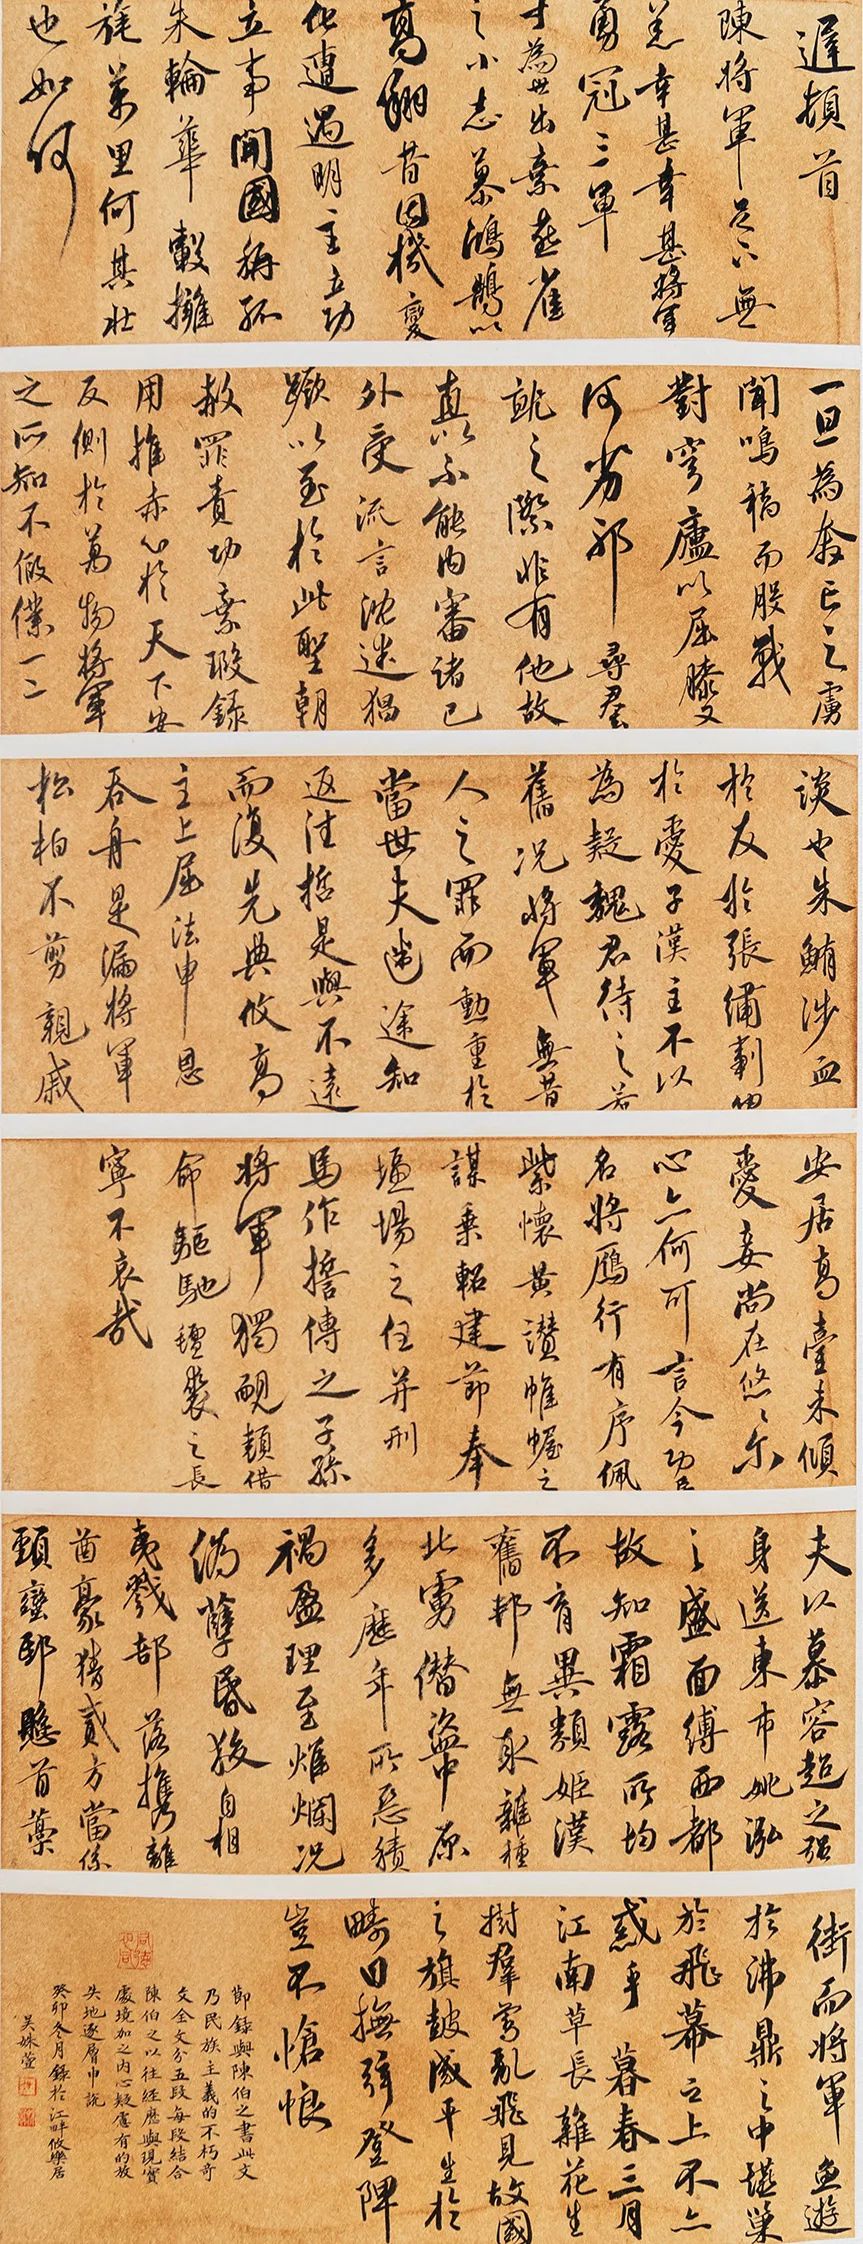 遲頓首
陳將軍足下無
恙幸甚幸甚將軍
勇冠三軍
才為世出棄燕雀
之小志慕鴻鵠以
高翔昔因機變
化遭遇明主立功
立事開國稱孤
朱輪華轂擁
旄萬里何其壯
也如何
一旦為奔亡之虜
聞鳴鏑而股戰
對穹廬以屈膝又
何劣邪尋君
就之際非有他故
直以不能內審諸己
外受流言沈迷猖
蹶以至於此聖朝
赦罪責功棄瑕錄
用推赤心於天下安
反側於萬物將軍
之所知不假僕一二
談也朱鮪涉血
於友于張繡剚刃
於愛子漢主不以
為疑魏君待之若
舊況將軍無昔
人之罪而勳重於
當世夫迷途知
返往哲是與不遠
而復先典攸高
主上屈法申恩
吞舟是漏將軍
松柏不剪親戚
安居高臺未傾
愛妾尚在悠悠爾
心亦何可言今功臣
名將雁行有序佩
紫懷黃讚帷幄之
謀乘軺建節奉
疆場之任并刑
馬作誓傳之子孫
將軍獨靦顏借
命驅馳氊裘之長
寧不哀哉
夫以慕容超之強
身送東市姚泓
之盛面縛西都
故知霜露所均
不育異類姬漢
舊邦無取雜種
北虜僭盜中原
多歷年所惡積
禍盈理至燋爛況
偽孽昏狡自相
夷戮部落攜離
酋豪猜貳方當係
頸蠻邸懸首藁
街而將軍魚遊
於沸鼎之中燕巢
於飛幕之上不亦
惑乎暮春三月
江南草長雜花生
樹羣鶯亂飛見故國
之旗鼓感平生於
疇日撫弦登陴
豈不愴悢
節錄與陳伯之書此文
乃民族主義的不朽奇
文全文分五段每段結合
陳伯之以往經歷與現實
處境加之內心疑慮有的放
矢地逐層申說
癸卯冬月錄於江畔攸樂居
吴姝萱